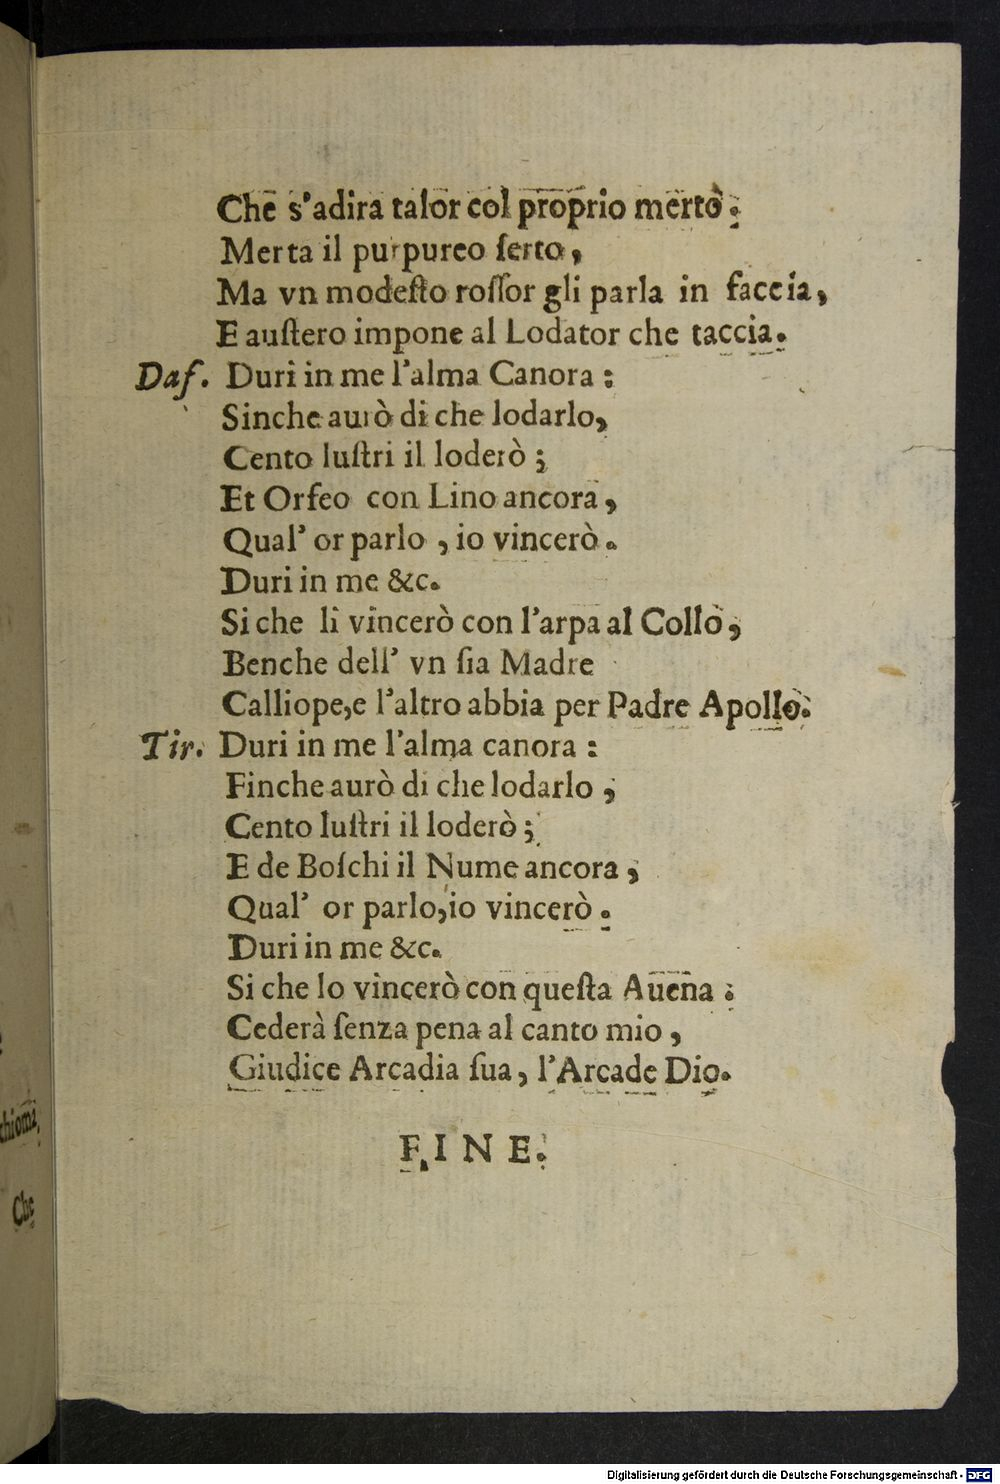 Che s'adira talor col proprio merto:
Merta il purpureo ſerto,
Ma vn modeſto roſſor gli parla in faccia,
E auſtero impone al Lodator che taccia.
Daf. Duri in me l'alma Canora:
Sinche aurò di che lodarlo,
Cento luſtri il loderò;
Et Orfeo con Lino ancora,
Qual' or parlo, io vincerò.
Duri in me &c.
Si che li vincerò con l'arpa al Collo,
Benche dell' vn ſia Madre
Calliope, e l'altro abbia per Padre Apollo.
Tir. Duri in me l'alma canora:
Finche aurò di che lodarlo,
Cento luſtri il loderò;
E de Boſchi il Nume ancora,
Qual' or parlo, io vincerò.
Duri in me &c.
Si che lo vincerò con queſta Auena:
Cederà ſenza pena al canto mio,
Giudice Arcadia ſua, l'Arcade Dio.
FINE.
chioma,
Che
Digitalisierung gefördert durch die Deutsche Forschungsgemeinschaft - DFG